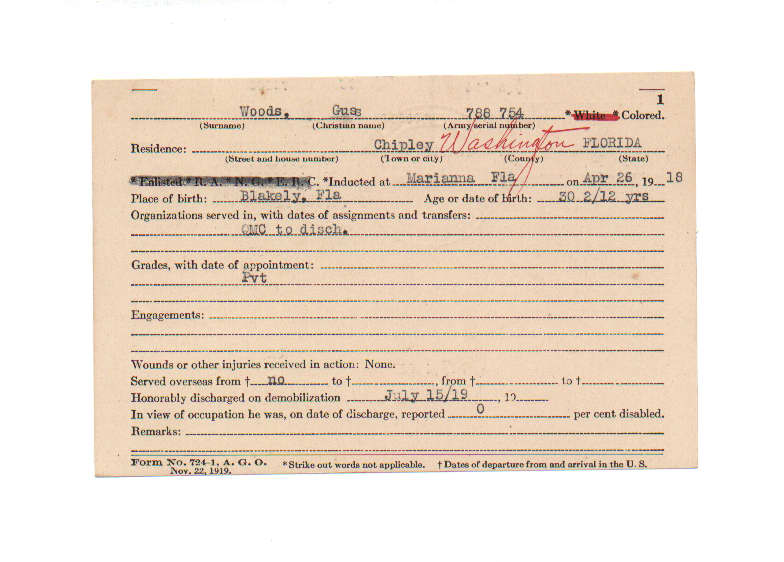 1
Woods, Guss 788 754 *White *Colored.
(Surname) (Christian name) (Army serial number)
Residence: Chipley Washington FLORIDA
(Street and house number) (Town or city) (County) (State)
*Enlisted *R. A. *N. G. *E. R. C. *Inducted at Marianna Fla on Apr 26, 19 18
Place of birth: Blakely, Fla Age or date of birth: 30 2/12 yrs
Organizations served in, with dates of assignments and transfers:
QMC to disch.
Grades, with date of appointment:
Pvt
Engagements:
Wounds or other injuries received in action: None.
Served overseas from † no to †, from † to †
Honorably discharged on demobilization July 15/19, 19
In view of occupation he was, on date of discharge, reported 0 per cent disabled.
Remarks:
Form No. 724-1, A. G. O. *Strike out words not applicable. † Dates of departure from and arrival in the U. S.
Nov. 22, 1919.